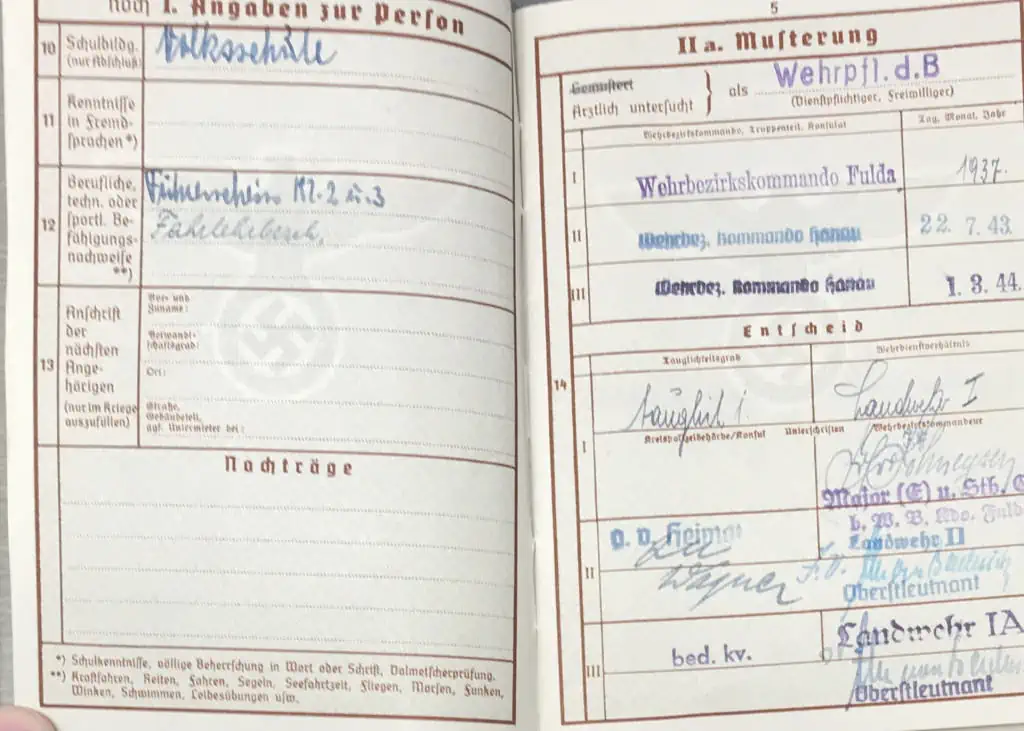 noch I. Angaben zur Person
10 Schulbildg. (nur Abschluß)
Volksschule
11 Kenntnisse in Fremd-
sprachen *)
12 Berufliche, techn. oder sportl. Be-
fähigungs-
nachweise **)
Führerschein Kl. 2 u. 3
13 Anschrift der nächsten Ange-
hörigen
(nur im Kriege auszufüllen)
Vor- und Zuname:
Verwandt-
schaftsgrad:
Ort:
Straße, Gebäudeteil, ggf. Untermieter bei:
Nachträge
*) Schulkenntnisse, völlige Beherrschung in Wort oder Schrift, Dolmetscherprüfung.
**) Kraftfahren, Reiten, Fahren, Segeln, Seefahrtzeit, Fliegen, Morsen, Funken,
Winken, Schwimmen, Leibesübungen usw.
5
II a. Musterung
Gemustert
Ärztlich untersucht
als Wehrpfl. d. B
(Dienstpflichtiger, Freiwilliger)
Wehrbezirkskommando, Truppenteil, Konsulat
Tag, Monat, Jahr
I Wehrbezirkskommando Fulda 1937.
II Wehrbez. Kommando Hanau 22. 7. 43.
III Wehrbez. Kommando Hanau 1. 3. 44.
14
Entscheid
Tauglichkeitsgrad
Wehrdienstverhältnis
I tauglich 1. Landwehr I
Kreispolizeibehörde/Konsul Unterschriften Wehrbezirkskommandeur
Major (E) u. Stb.
b. W. B. Kdo. Fuld
II g. v. Heimat
Landwehr II
Wagner
Oberstleutnant
III bed. kv.
Landwehr IA
Oberstleutnant